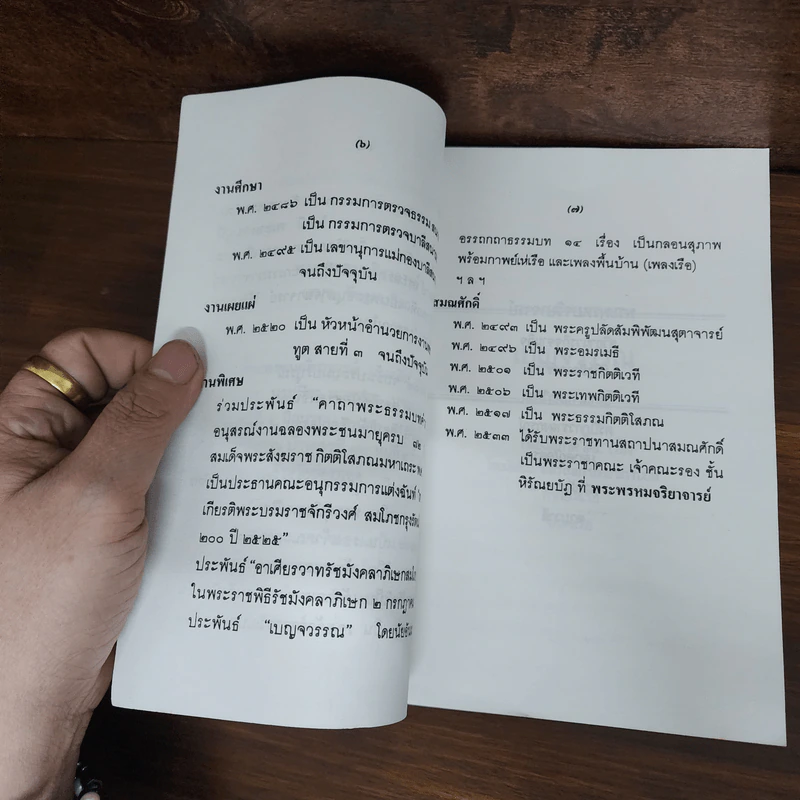 (๖)
งานศึกษา
พ.ศ. ๒๔๘๖ เป็น กรรมการตรวจธรรม
เป็น กรรมการตรวจบาลีสนาม
พ.ศ. ๒๔๙๕ เป็น เลขานุการแม่กองบาลี
จนถึงปัจจุบัน
งานเผยแผ่
พ.ศ. ๒๕๒๐ เป็น หัวหน้าอำนวยการงาน
ทูต สายที่ ๓ จนถึงปัจจุบัน
งานพิเศษ
ร่วมประพันธ์ "คาถาพระธรรมบท
อนุสรณ์งานฉลองพระชนมายุครบ ๗๒
สมเด็จพระสังฆราช กิตติโสภณมหาเถระ
เป็นประธานคณะอนุกรรมการแต่งฉันท์
เกียรติพระบรมราชจักรีวงศ์ สมโภชกรุงรัตน
๒๐๐ ปี ๒๕๒๕"
ประพันธ์ "อาเศียรวาทรัชมังคลาภิเษก
ในพระราชพิธีรัชมังคลาภิเษก ๒ กรกฎาค
ประพันธ์ "เบญจวรรณ" โดยนัย
(๗)
อรรถกถาธรรมบท ๑๔ เรื่อง เป็นกลอนสุภาพ
พร้อมกาพย์เห่เรือ และเพลงพื้นบ้าน (เพลงเรือ)
ฯ ล ฯ
สมณศักดิ์
พ.ศ. ๒๔๙๓ เป็น พระครูปลัดสัมพิพัฒนสุตาจารย์
พ.ศ. ๒๔๙๖ เป็น พระอมรเมธี
พ.ศ. ๒๕๐๑ เป็น พระราชกิตติเวที
พ.ศ. ๒๕๐๖ เป็น พระเทพกิตติเวที
พ.ศ. ๒๕๑๗ เป็น พระธรรมกิตติโสภณ
พ.ศ. ๒๕๓๓ ได้รับพระราชทานสถาปนาสมณศักดิ์
เป็นพระราชาคณะ เจ้าคณะรอง ชั้น
หิรัณยบัฏ ที่ พระพรหมจริยาจารย์